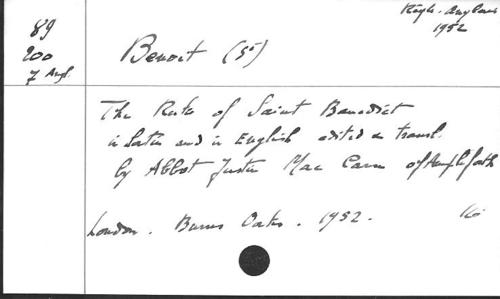 Règle. Anglais
1952
89
200
7 Angl.
Benoit (St)
The Rule of Saint Benedict
in Latin and in English edited a transl.
by Abbot Justin Mac Cann of Ampleforth
London. Burns Oates. 1952.